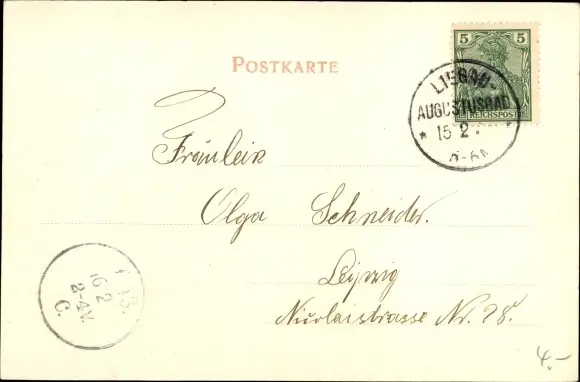 POSTKARTE
5 5
REICHSPOST
AUGUSTUSBAD
* 15 2 *
Fräulein
Olga Schneider.
Leipzig
Nicolaistrasse Nr. 28.
13.
16 2
2-4V.
C.
4.-